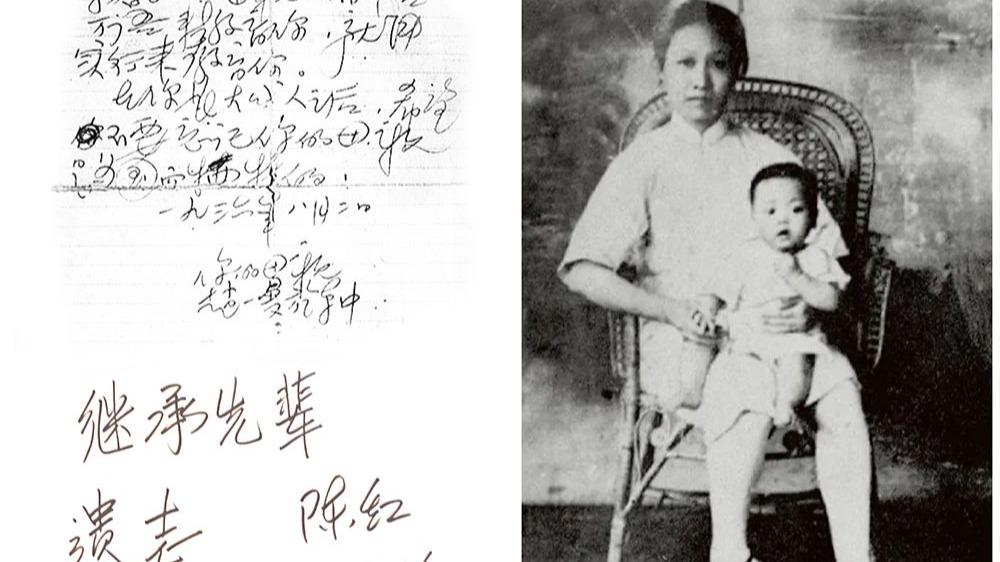 来教育你，就用
实行来教育你。
在你长大成人之后，希望
不要忘记你的母亲
是为国而牺牲的！
一九三六年八月二日
你的母亲
赵一曼于车中
继承先辈
遗志 陈红